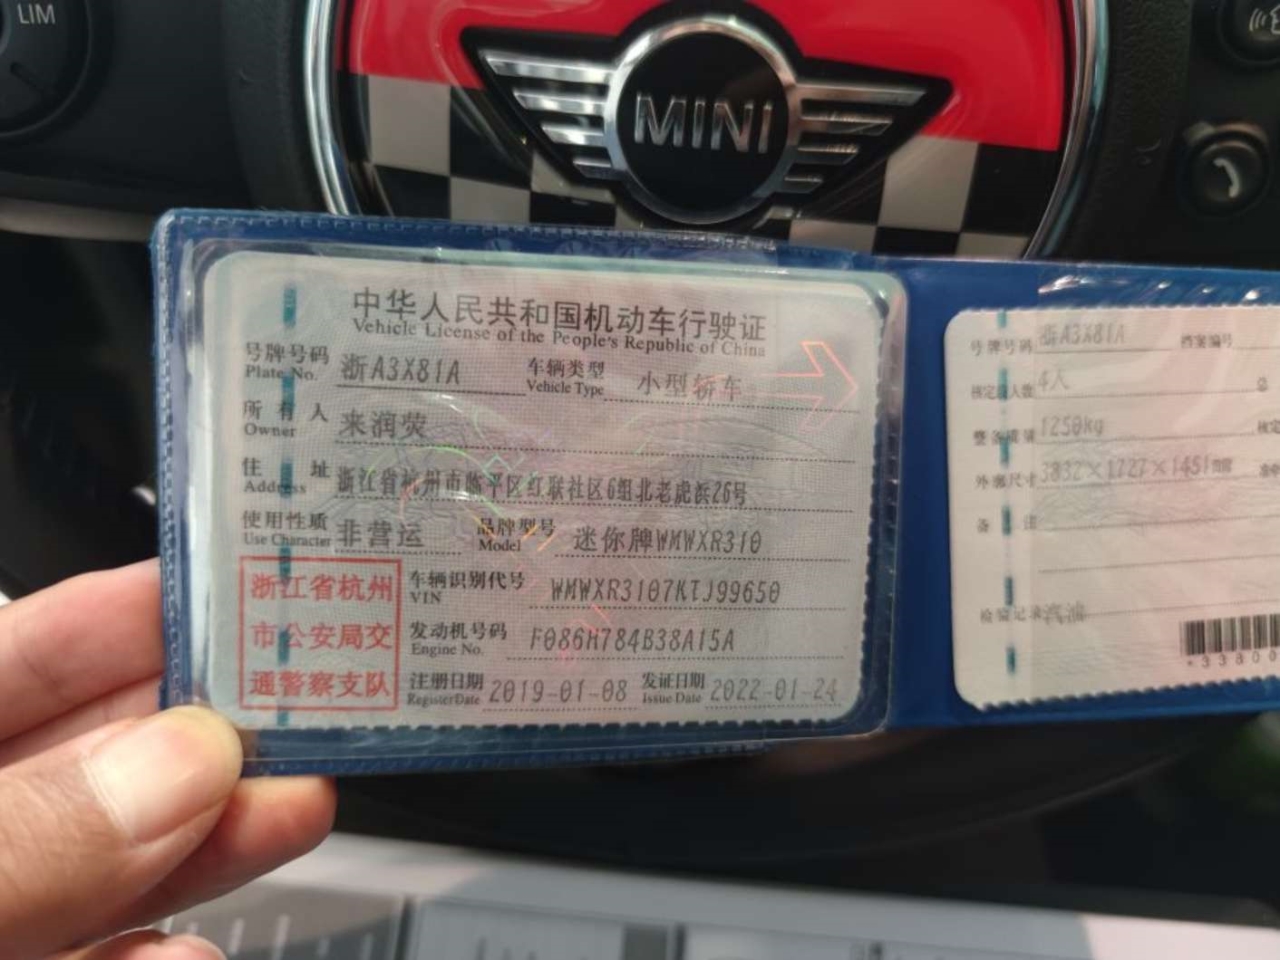 LIM
MINI
中华人民共和国机动车行驶证
Vehicle License of the People's Republic of China
号牌号码 浙A3X81A 车辆类型 小型轿车
Plate No. Vehicle Type
所有人 来润荧
Owner
住址 浙江省杭州市临平区红联社区6组北老虎浜26号
Address
使用性质 非营运 品牌型号 迷你牌WMWXR310
Use Character Model
浙江省杭州
市公安局交
通警察支队
车辆识别代号 WMWXR3107KTJ99650
VIN
发动机号码 F086H784B38A15A
Engine No.
注册日期 2019-01-08 发证日期 2022-01-24
Register Date Issue Date
号牌号码 浙A3X81A 档案编号
核定载人数 4人 总
整备质量 1250kg 核定
外廓尺寸 3832×1727×1451mm
备注
检验记录 汽油
*33800